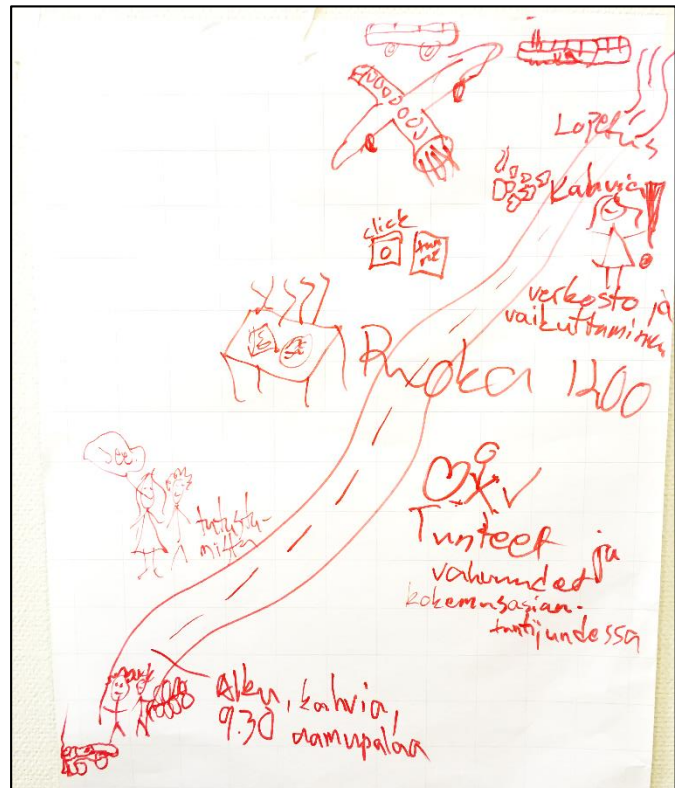 Lopetus
Kahvia
click
verkosto ja
vaikuttaminen
Ruoka 1200
Jee!
tutustu-
mista
Tunteet ja
vahvuudet
kokemusasian-
tuntijuudessa
Alku, kahvia,
9.30 aamupalaa